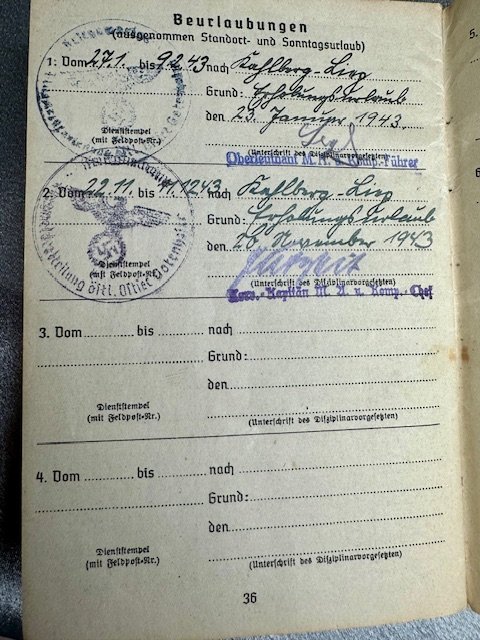 Beurlaubungen
(ausgenommen Standort- und Sonntagsurlaub)
1. Vom 27.1. bis 9.2.43 nach Kahlberg-Liep
Grund: Erholungsurlaub
den 23. Januar 1943
Dienststempel
(mit Feldpost-Nr.)
(Unterschrift des Disziplinarvorgesetzten)
Oberleutnant M.A. u. Komp.-Führer
2. Vom 22.11. bis 11.12.43 nach Kahlberg-Liep
Grund: Erholungsurlaub
den 20. November 1943
Dienststempel
(mit Feldpost-Nr.)
(Unterschrift des Disziplinarvorgesetzten)
Korv.-Kapitän M. A. u. Komp.-Chef
3. Vom bis nach
Grund:
den
Dienststempel
(mit Feldpost-Nr.)
(Unterschrift des Disziplinarvorgesetzten)
4. Vom bis nach
Grund:
den
Dienststempel
(mit Feldpost-Nr.)
(Unterschrift des Disziplinarvorgesetzten)
36
5.
6